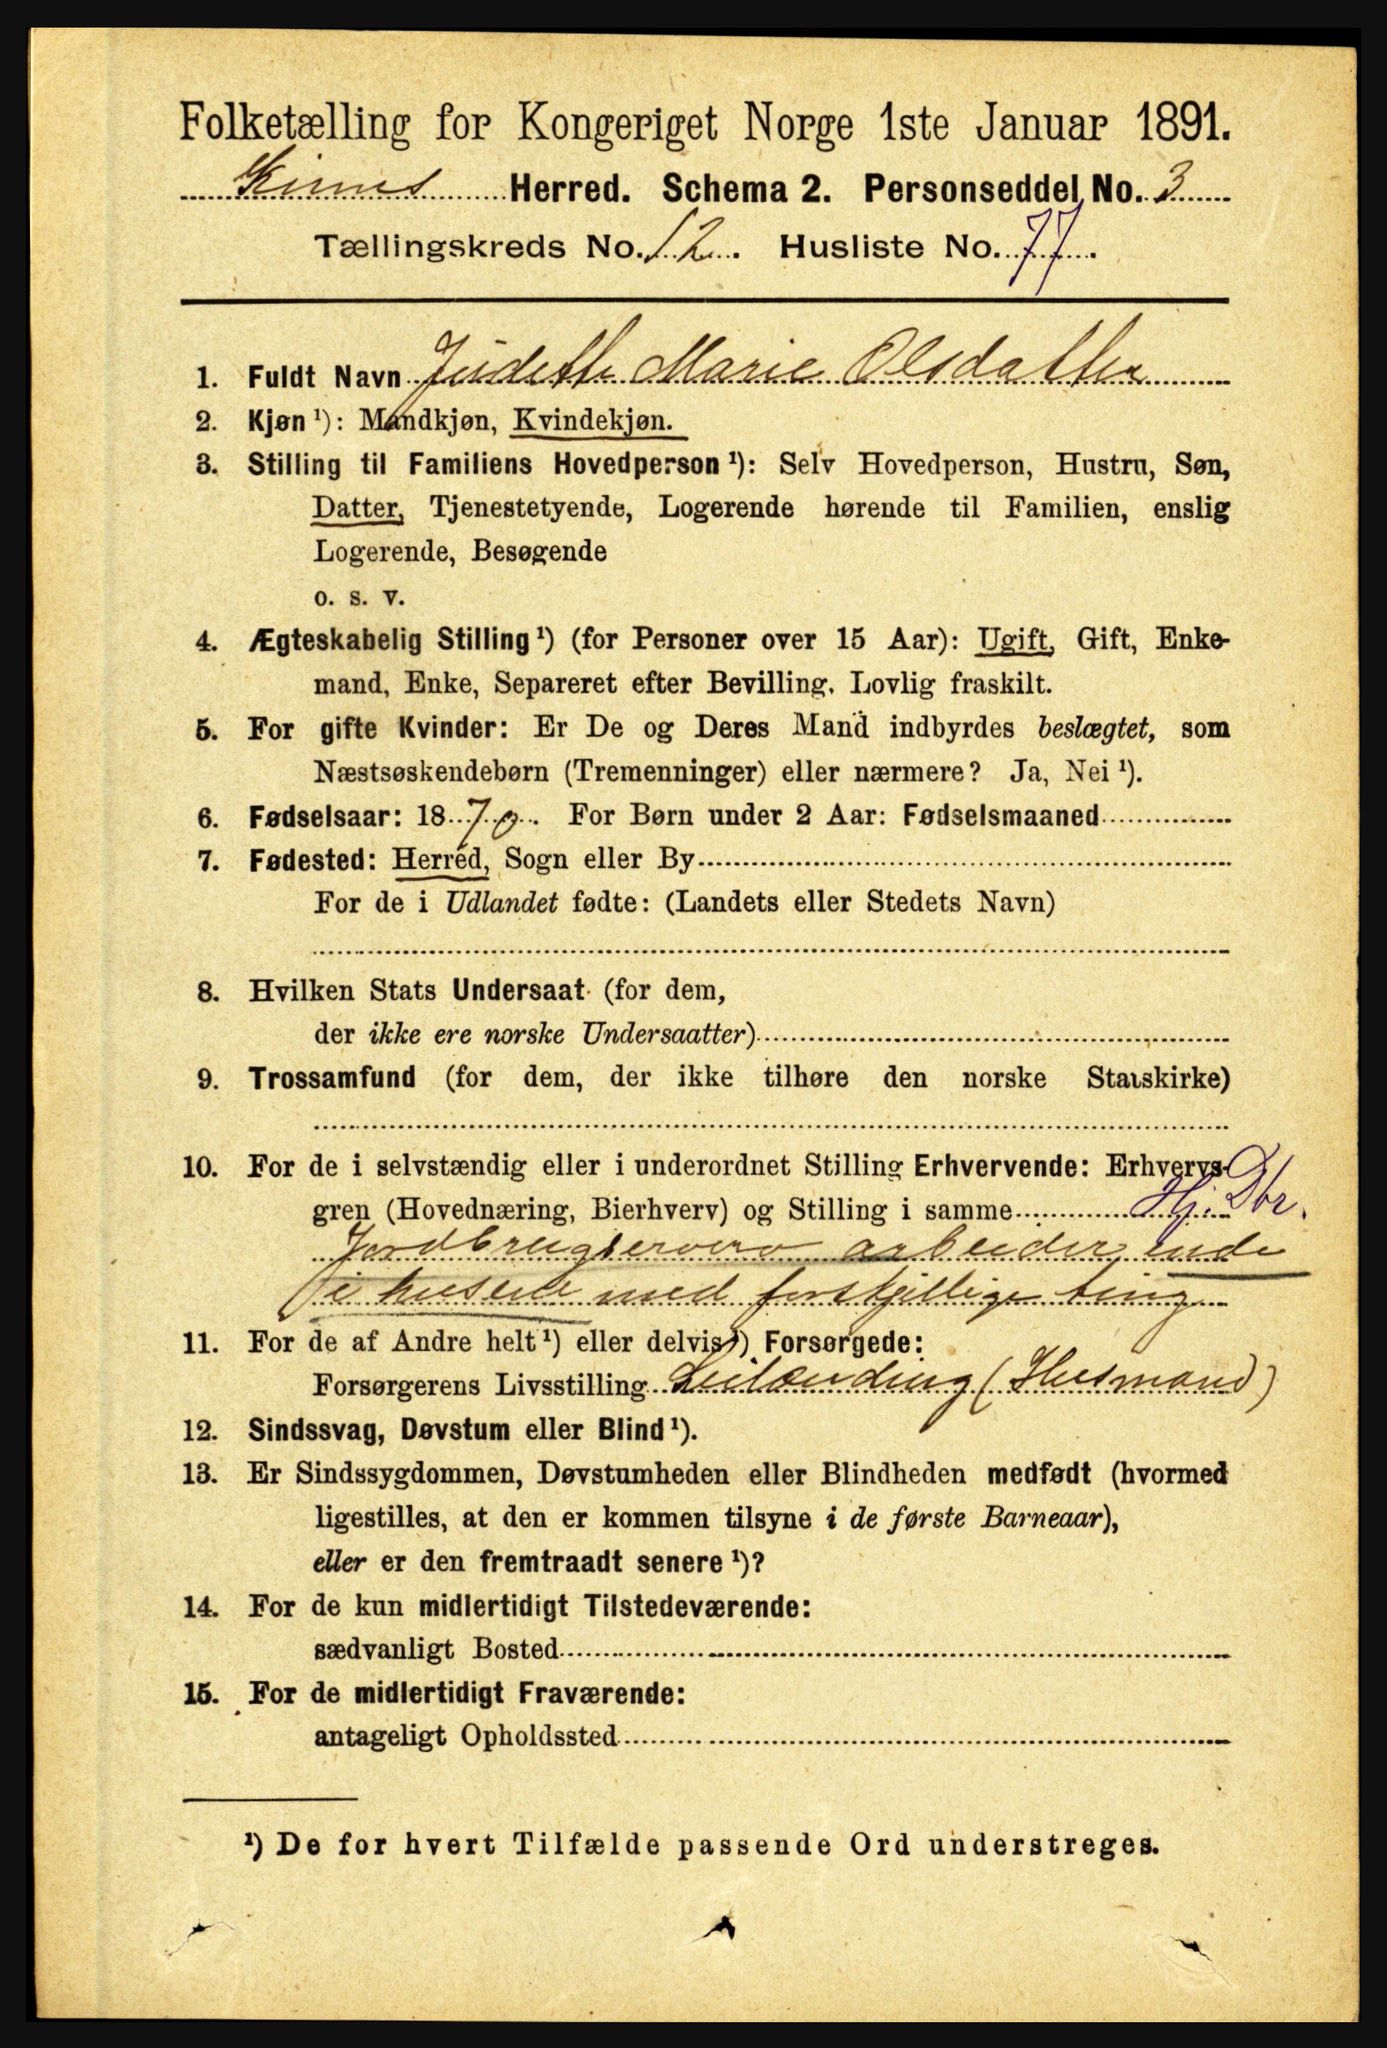 Folketælling for Kongeriget Norge 1ste Januar 1891.
Kinns Herred. Schema 2. Personseddel No. 3
Tællingskreds No. 12. Husliste No. 77.
1. Fuldt Navn Judette Marie Olsdatter
2. Kjøn ¹): Mandkjøn, Kvindekjøn.
3. Stilling til Familiens Hovedperson ¹): Selv Hovedperson, Hustru, Søn,
Datter, Tjenestetyende, Logerende hørende til Familien, enslig
Logerende, Besøgende
o. s. v.
4. Ægteskabelig Stilling ¹) (for Personer over 15 Aar): Ugift, Gift, Enke-
mand, Enke, Separeret efter Bevilling, Lovlig fraskilt.
5. For gifte Kvinder: Er De og Deres Mand indbyrdes beslægtet, som
Næstsøskendebørn (Tremenninger) eller nærmere? Ja, Nei ¹).
6. Fødselsaar: 1870. For Børn under 2 Aar: Fødselsmaaned
7. Fødested: Herred, Sogn eller By
For de i Udlandet fødte: (Landets eller Stedets Navn)
8. Hvilken Stats Undersaat (for dem,
der ikke ere norske Undersaatter)
9. Trossamfund (for dem, der ikke tilhøre den norske Statskirke)
10. For de i selvstændig eller i underordnet Stilling Erhvervende: Erhvervs-
gren (Hovednæring, Bierhverv) og Stilling i samme Hj. Dbr.
Jordbrug arbeider inde
i huset med forskjellige ting
11. For de af Andre helt ¹) eller delvis ¹) Forsørgede:
Forsørgerens Livsstilling Leilænding (Husmand)
12. Sindssvag, Døvstum eller Blind ¹).
13. Er Sindssygdommen, Døvstumheden eller Blindheden medfødt (hvormed
ligestilles, at den er kommen tilsyne i de første Barneaar),
eller er den fremtraadt senere ¹)?
14. For de kun midlertidigt Tilstedeværende:
sædvanligt Bosted
15. For de midlertidigt Fraværende:
antageligt Opholdssted
¹) De for hvert Tilfælde passende Ord understreges.